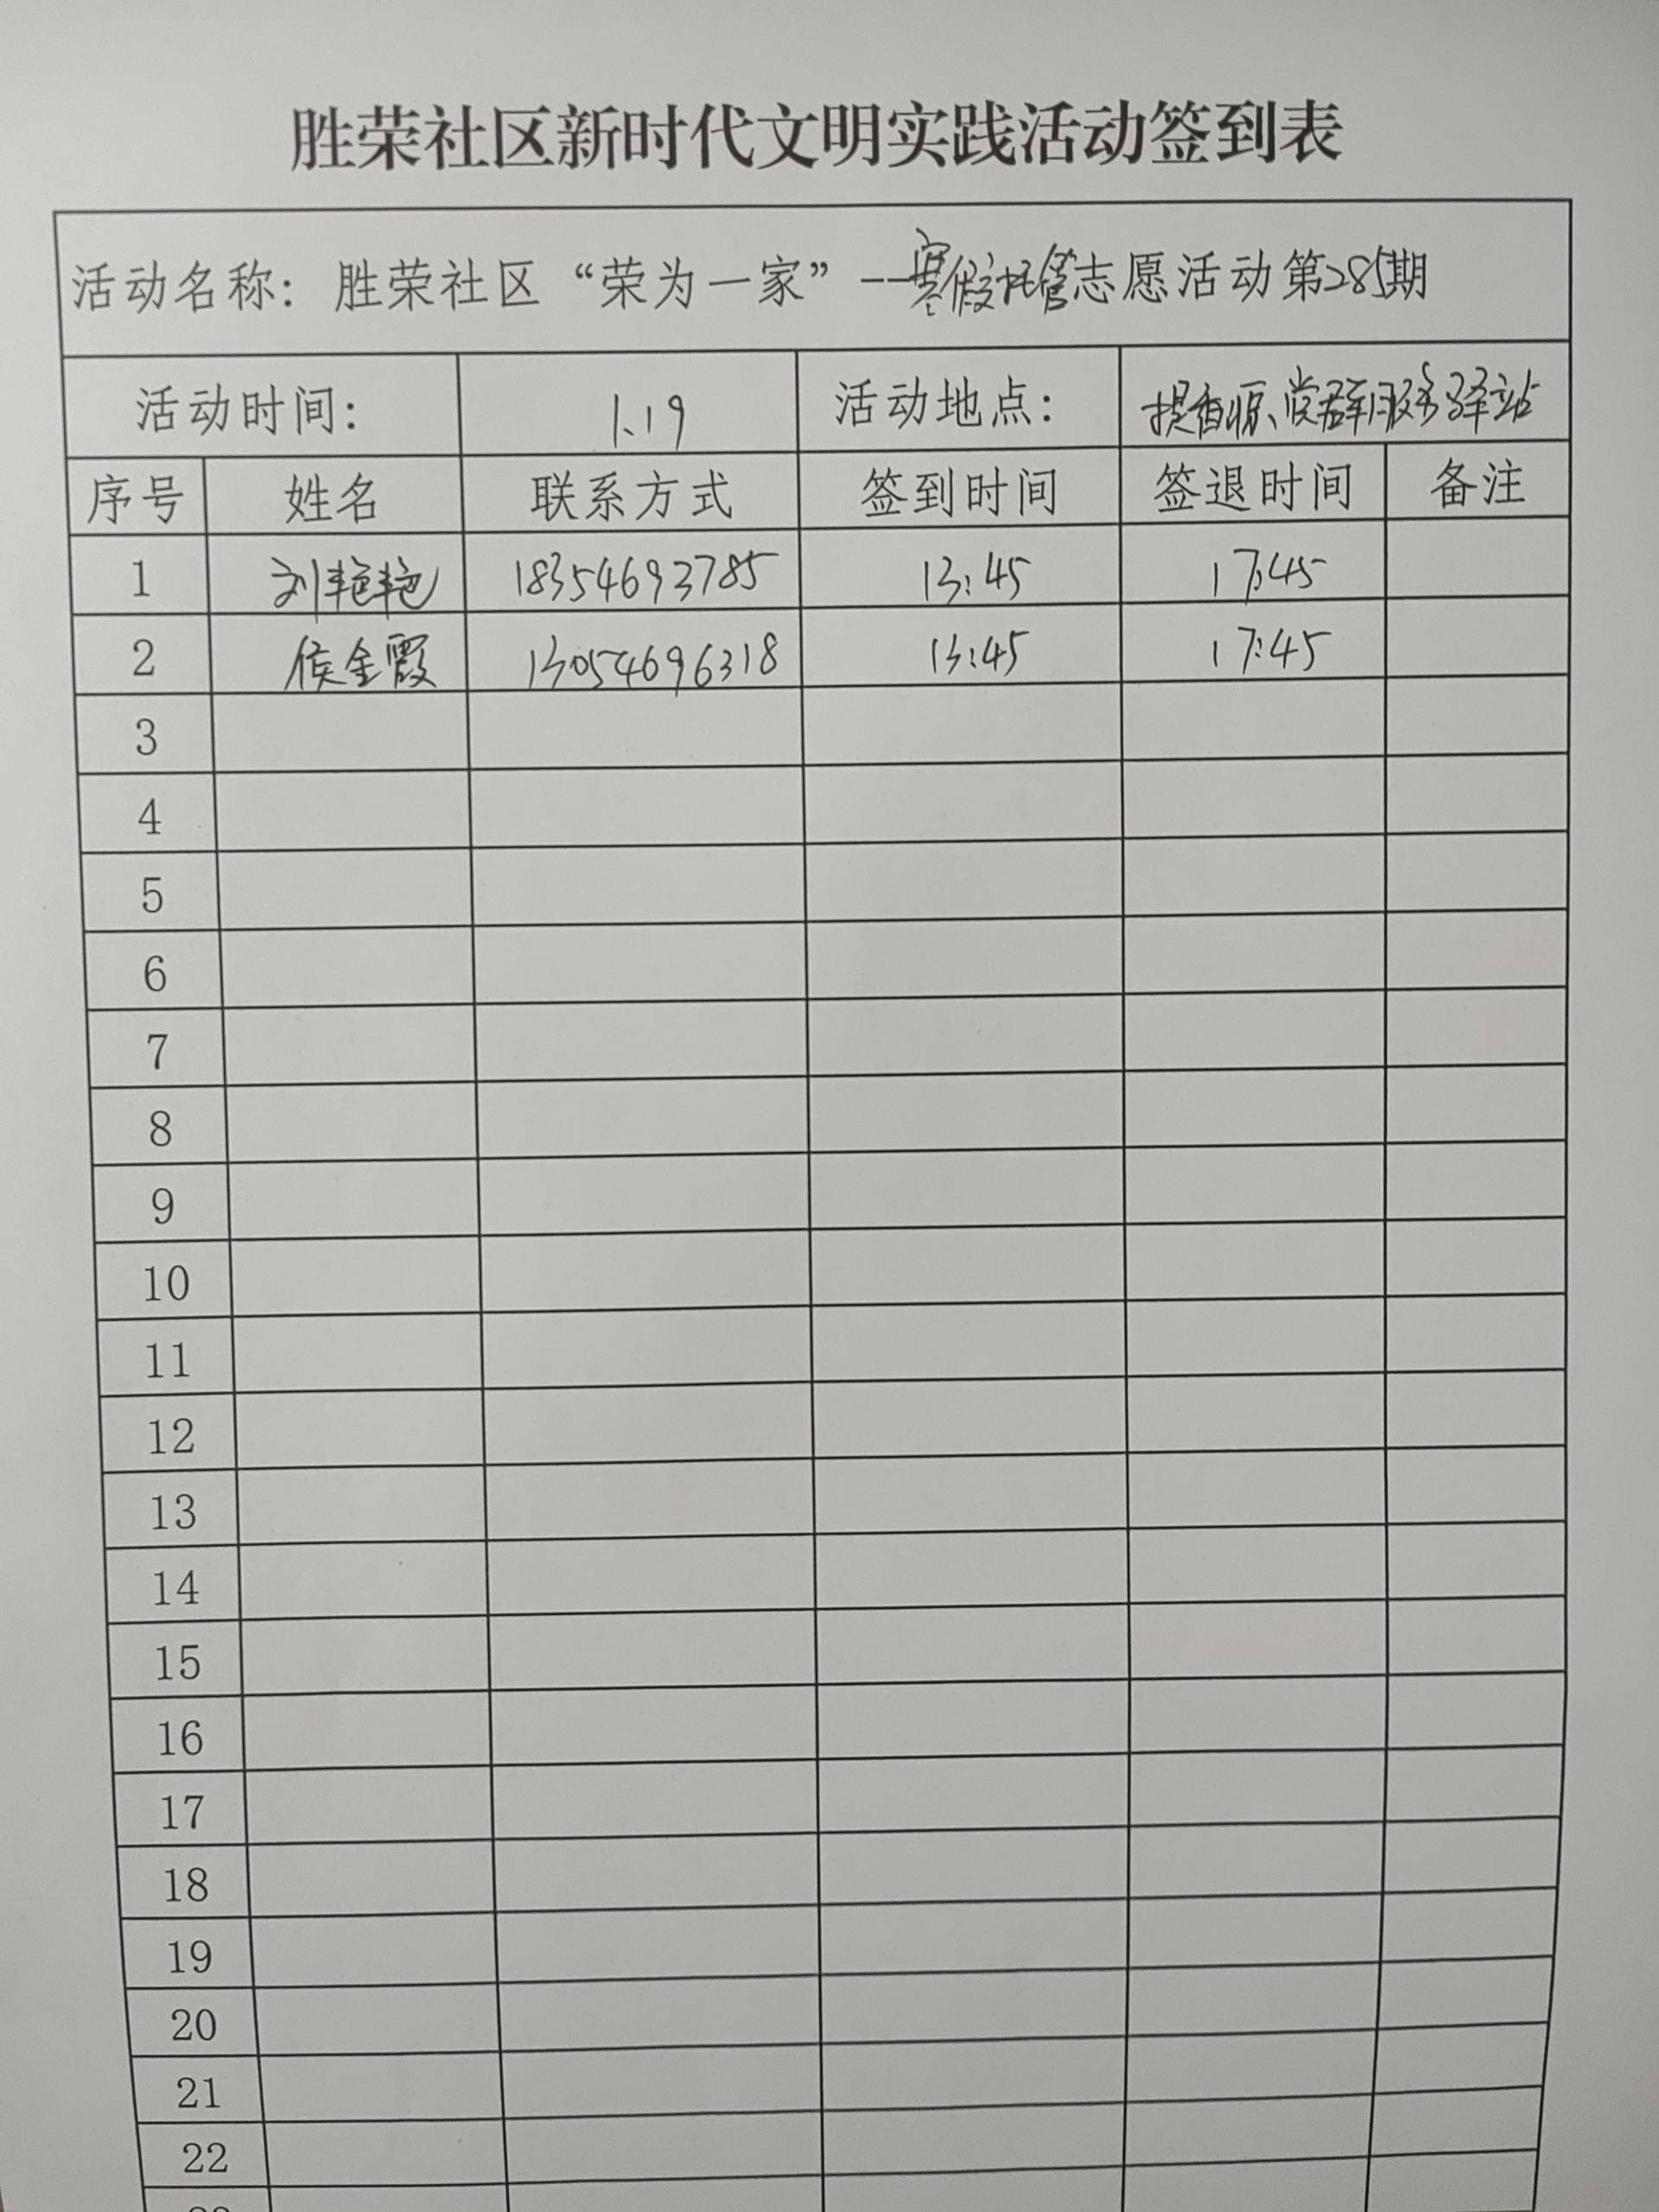 胜荣社区新时代文明实践活动签到表
活动名称：胜荣社区“荣为一家”--寒假托管志愿活动第285期
活动时间： 1.19 活动地点： 提香源党群服务驿站
序号 姓名 联系方式 签到时间 签退时间 备注
1 刘艳艳 18354693785 13:45 17:45
2 侯金霞 13054696318 13:45 17:45
3
4
5
6
7
8
9
10
11
12
13
14
15
16
17
18
19
20
21
22